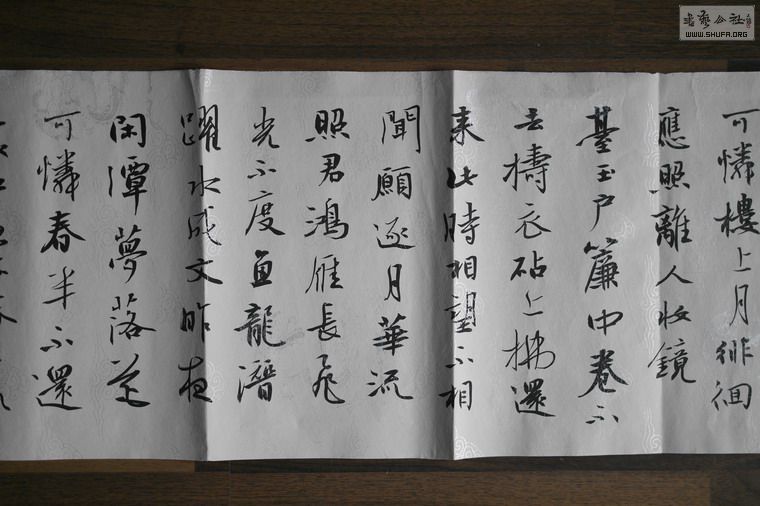 可憐樓上月徘徊
應照離人妝鏡
臺玉戶簾中卷不
去擣衣砧上拂還
來此時相望不相
聞願逐月華流
照君鴻雁長飛
光不度魚龍潛
躍水成文昨夜
閑潭夢落花
可憐春半不還
書藝公社
WWW.SHUFA.ORG